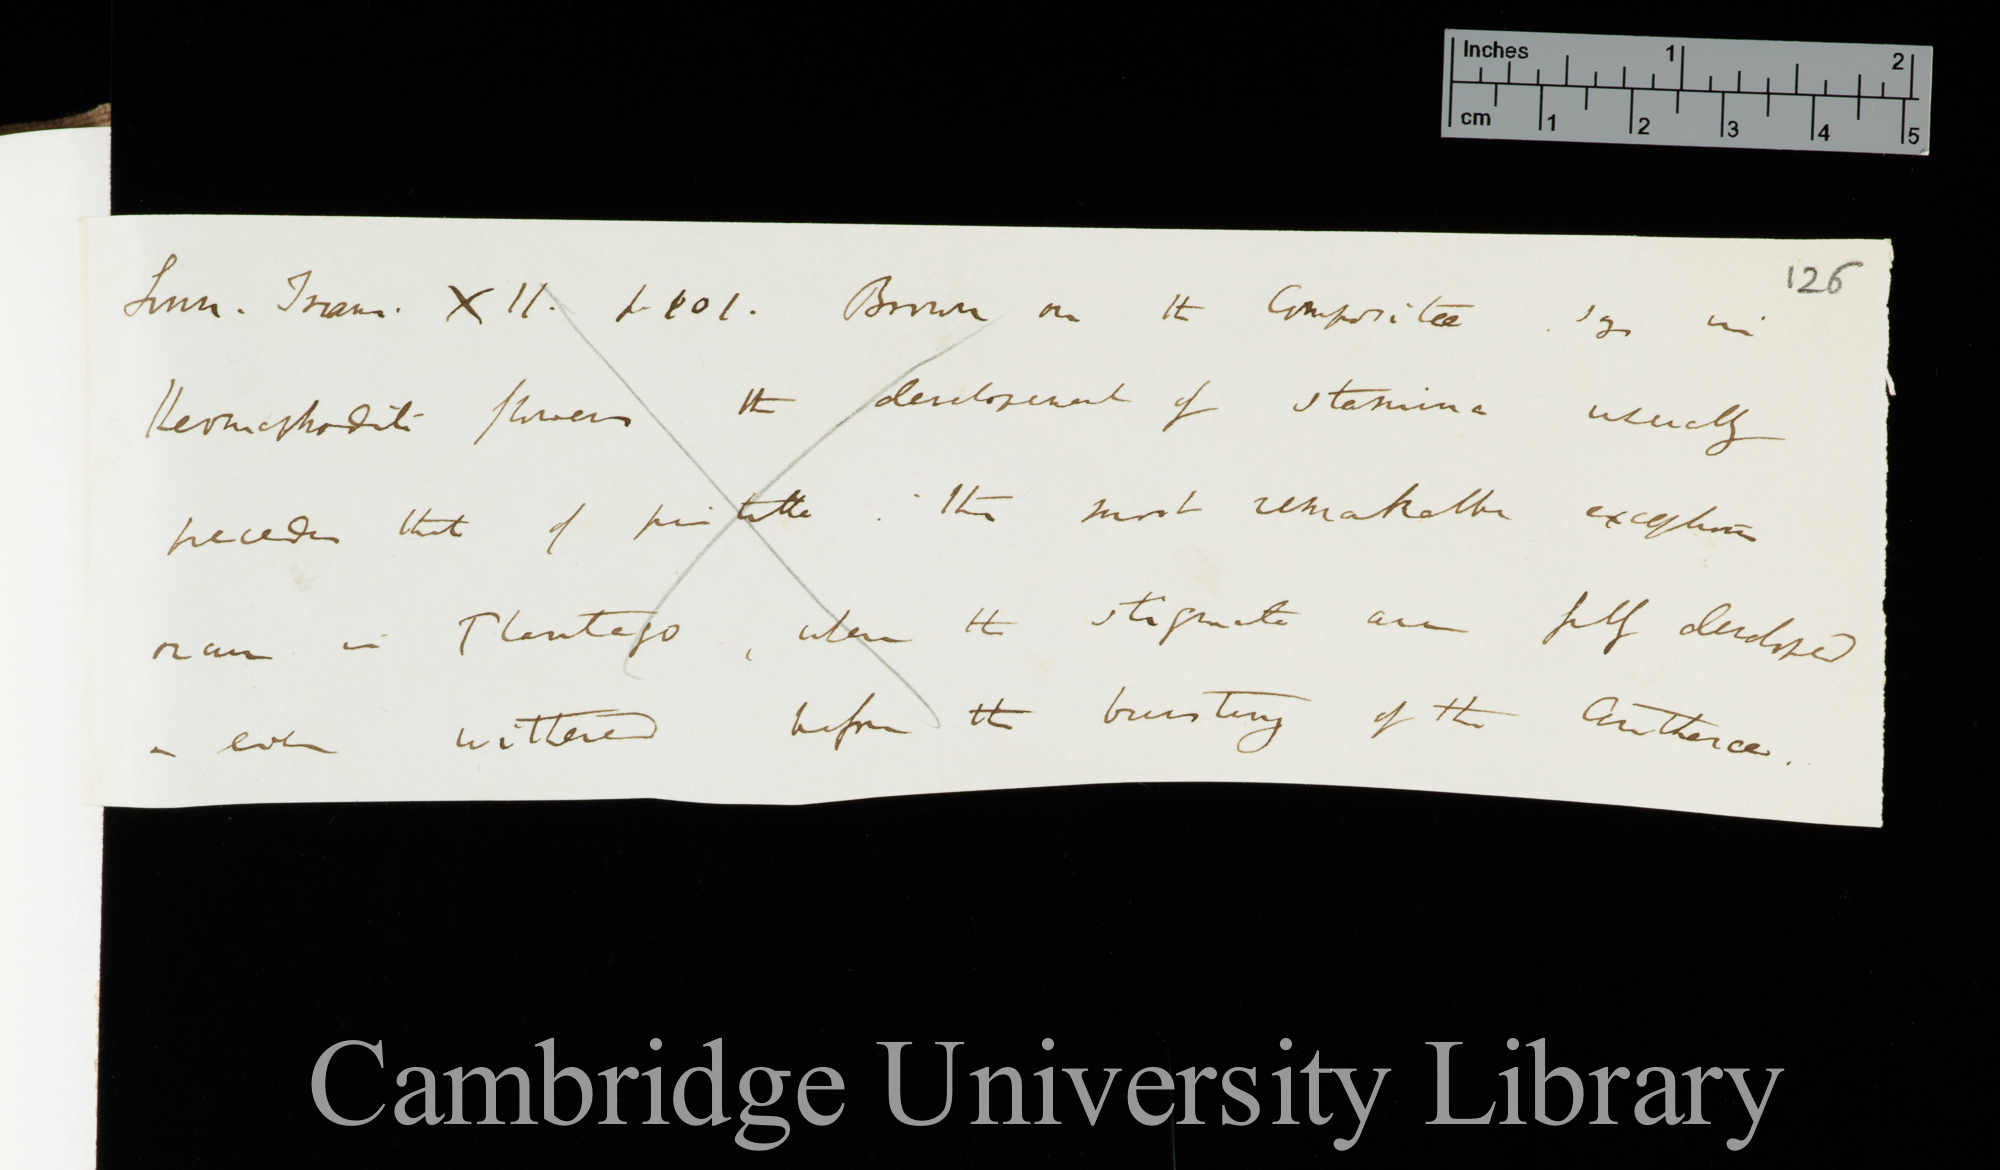 Inches 1 2
cm 1 2 3 4 5
126
Linn. Trans. XII. p. 101. Brown on the Compositæ. says in
Hermaphrodite flowers the developement of stamina usually
precedes that of pistilla. The most remarkable exceptions
occur in Plantago, where the stigmata are fully developed
or even withered before the bursting of the Antheræ.
Cambridge University Library